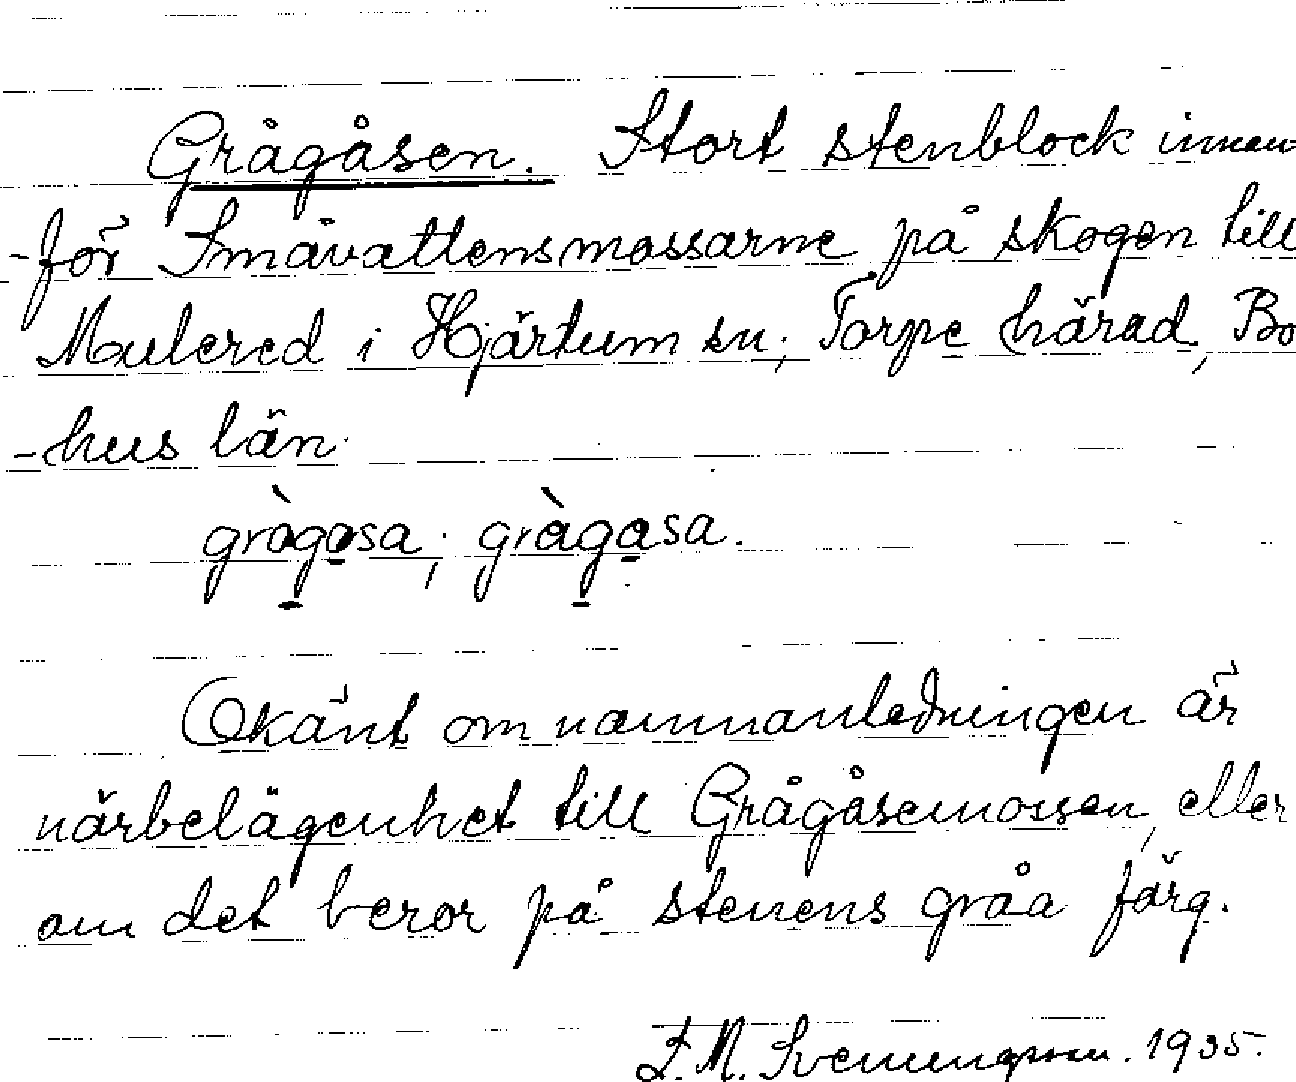 Grågåsen. Stort stenblock innan-
-för Småvattensmossarne på skogen till
Mulered i Hjärtum sn; Torpe härad, Bo
-hus län.
gràgasa; gràgasa.
Okänt om namnanledningen är
närbelägenhet till Grågåsemossen, eller
om det beror på stenens gråa färg.
F. M. Svenungsson. 1935.